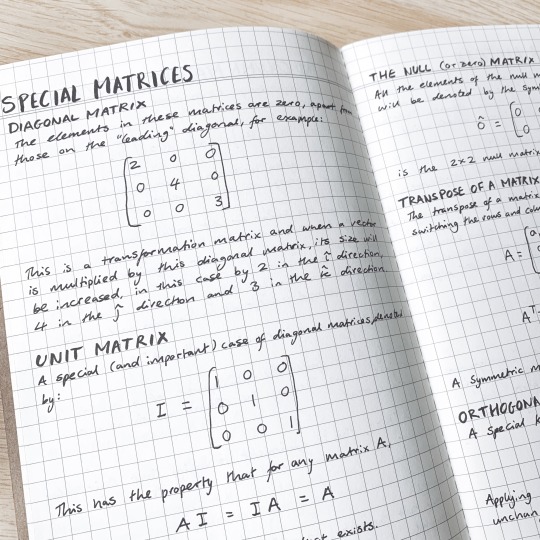 SPECIAL MATRICES
DIAGONAL MATRIX
The elements in these matrices are zero, apart from
those on the "leading" diagonal, for example:
2 0 0
0 4 0
0 0 3
This is a transformation matrix and when a vector
is multiplied by this diagonal matrix, its size will
be increased, in this case by 2 in the î direction,
4 in the ĵ direction and 3 in the k̂ direction.
UNIT MATRIX
A special (and important) case of diagonal matrices, denoted
by:
I =
1 0 0
0 1 0
0 0 1
This has the property that for any matrix A,
A I = I A = A
exists.
THE NULL (or zero) MATRIX
All the elements of the null
will be denoted by the
ô = 0
0
is the 2x2 null matrix
TRANSPOSE OF A MATRIX
The transpose of a matrix
switching the rows and
A =
Aᵀ
A symmetric
ORTHOGONA
A special
Applying
unchan